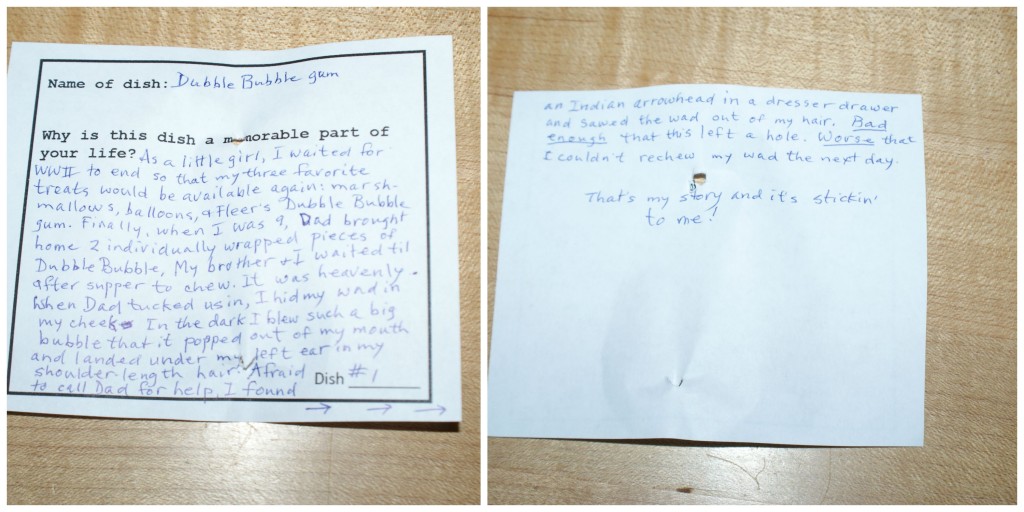 Name of dish: Dubble Bubble gum
Why is this dish a memorable part of
your life? As a little girl, I waited for
WWII to end so that my three favorite
treats would be available again: marsh-
mallows, balloons, & Fleer's Dubble Bubble
gum. Finally, when I was 9, Dad brought
home 2 individually wrapped pieces of
Dubble Bubble, My brother & I waited til
after supper to chew. It was heavenly.
When Dad tucked us in, I hid my wad in
my cheek. In the dark I blew such a big
bubble that it popped out of my mouth
and landed under my left ear in my
shoulder-length hair. Afraid
to call Dad for help, I found
Dish #1
→ → →
an Indian arrowhead in a dresser drawer
and sawed the wad out of my hair. Bad
enough that this left a hole. Worse that
I couldn't rechew my wad the next day.
That's my story and it's stickin'
to me!